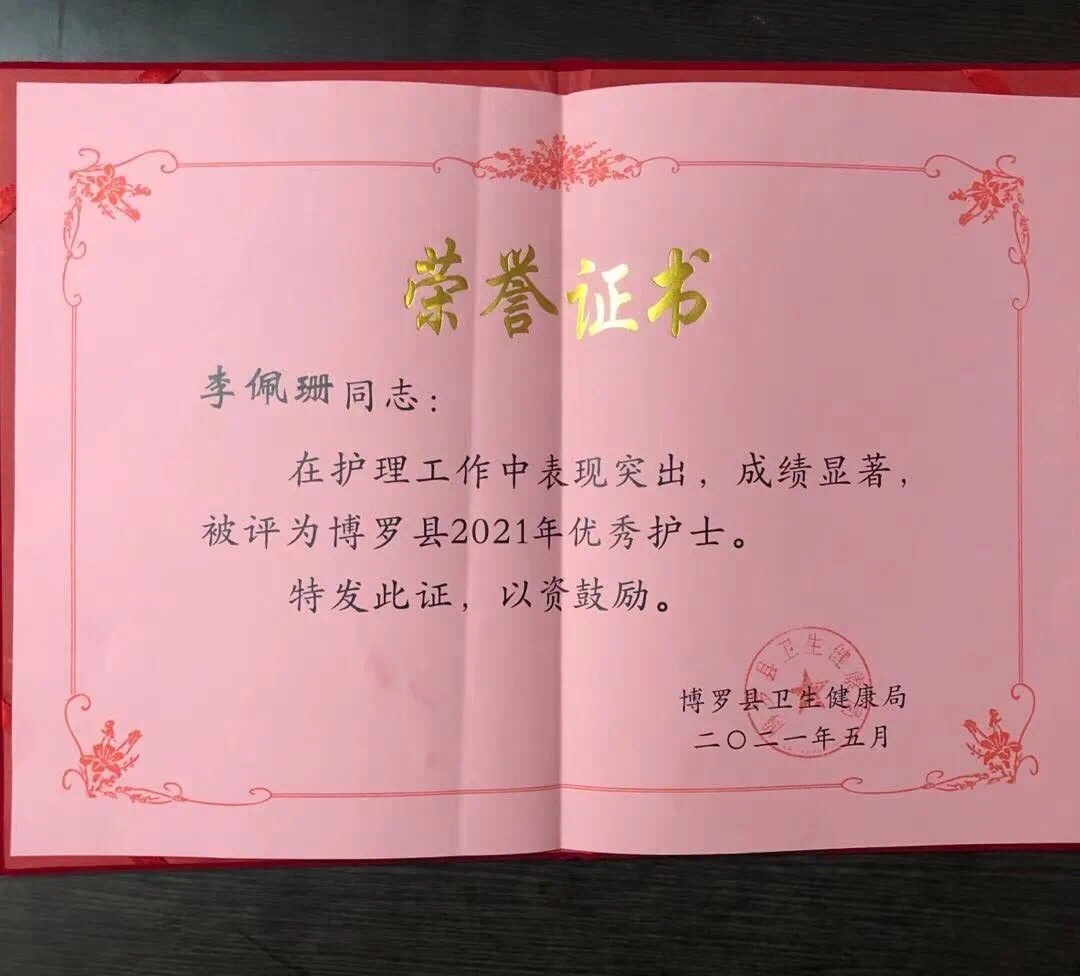 荣誉证书
李佩珊同志：
在护理工作中表现突出，成绩显著，
被评为博罗县2021年优秀护士。
特发此证，以资鼓励。
博罗县卫生健康局
博罗县卫生健康局
二〇二一年五月